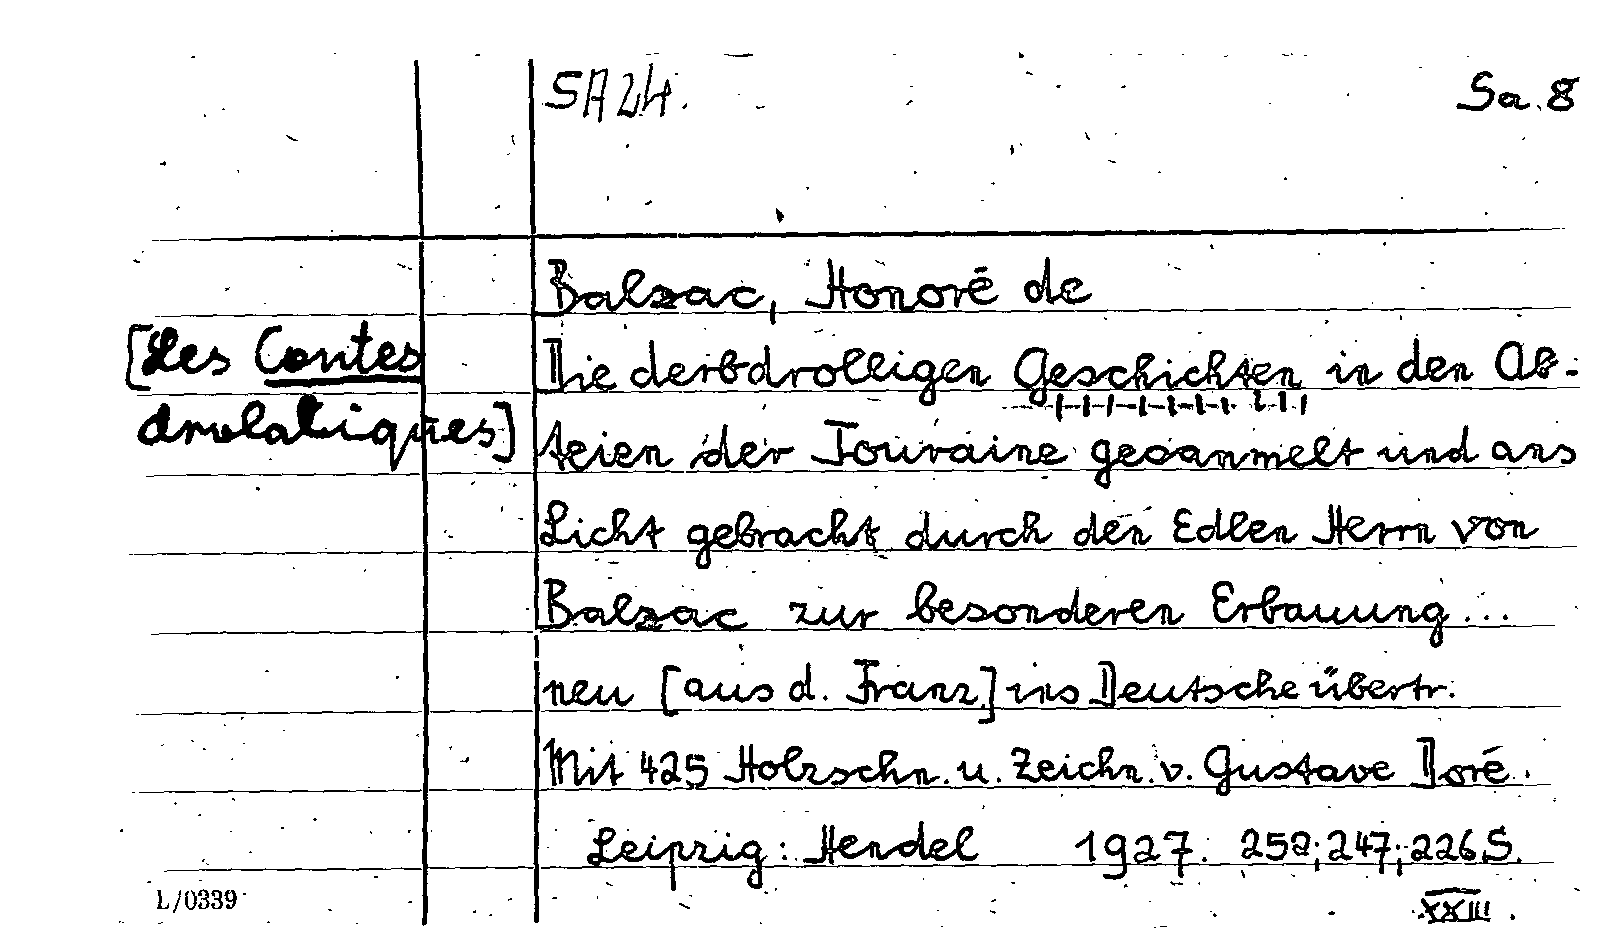 SA 24. Sa. 8
Balzac, Honoré de
[Les Contes
Die derbdrolligen Geschichten in den Ab-
drolatiques]
teien der Touraine gesammelt und ans
Licht gebracht durch den Edlen Herrn von
Balzac zur besonderen Erbauung...
neu [aus d. Franz.] ins Deutsche übertr.
Mit 425 Holzschn. u. Zeichn. v. Gustave Doré.
Leipzig: Hendel 1927. 252; 247; 226 S.
L/0339
XXIII.